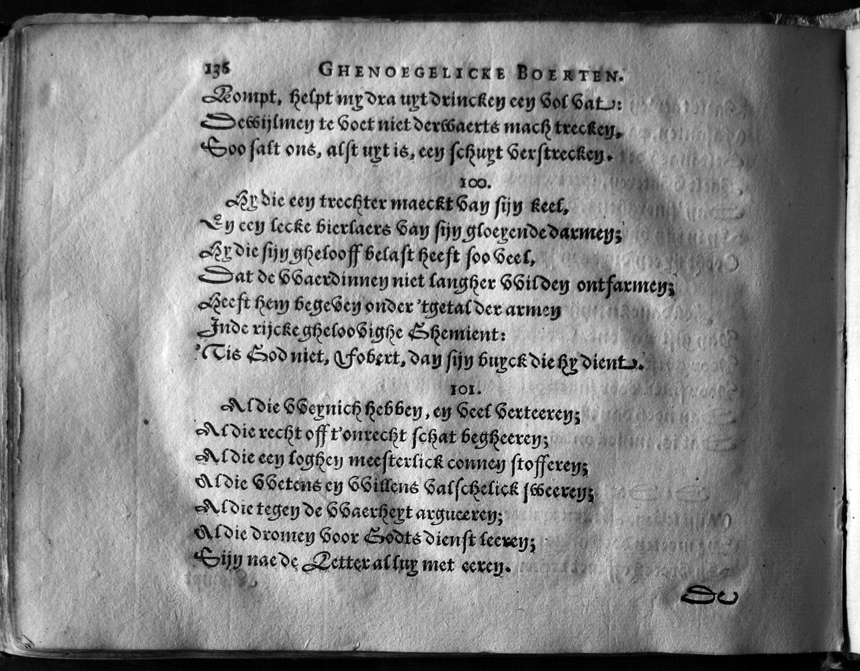 136 GHENOEGELICKE BOERTEN.
Rompt, helpt my dra uyt drincken een vol vat:
Dewijlmen te voet niet derwaerts mach trecken,
Soo salt ons, alst uyt is, een schuyt verstrecken.
100.
Hy die een trechter maeckt van sijn keel,
En een lecke bierlaers van sijn gloeyende darmen;
Hy die sijn ghelooff belast heeft soo veel,
Dat de VVaerdinnen niet langher VVilden ontfarmen;
Heeft hem begeven onder 'tgetal der armen
Inde rijcke gheloovighe Ghemient:
'Tis God niet, Fobert, dan sijn buyck die hy dient.
101.
Al die VVeynich hebben, en veel verteeren;
Al die recht off t'onrecht schat begheeren;
Al die een loghen meesterlick connen stofferen;
Al die VVetens en VVillens valschelick sweeren;
Al die tegen de VVaerheyt argueeren;
Al die dromen voor Godts dienst leeren;
Sijn nae de Letter al luy met eeren.
De